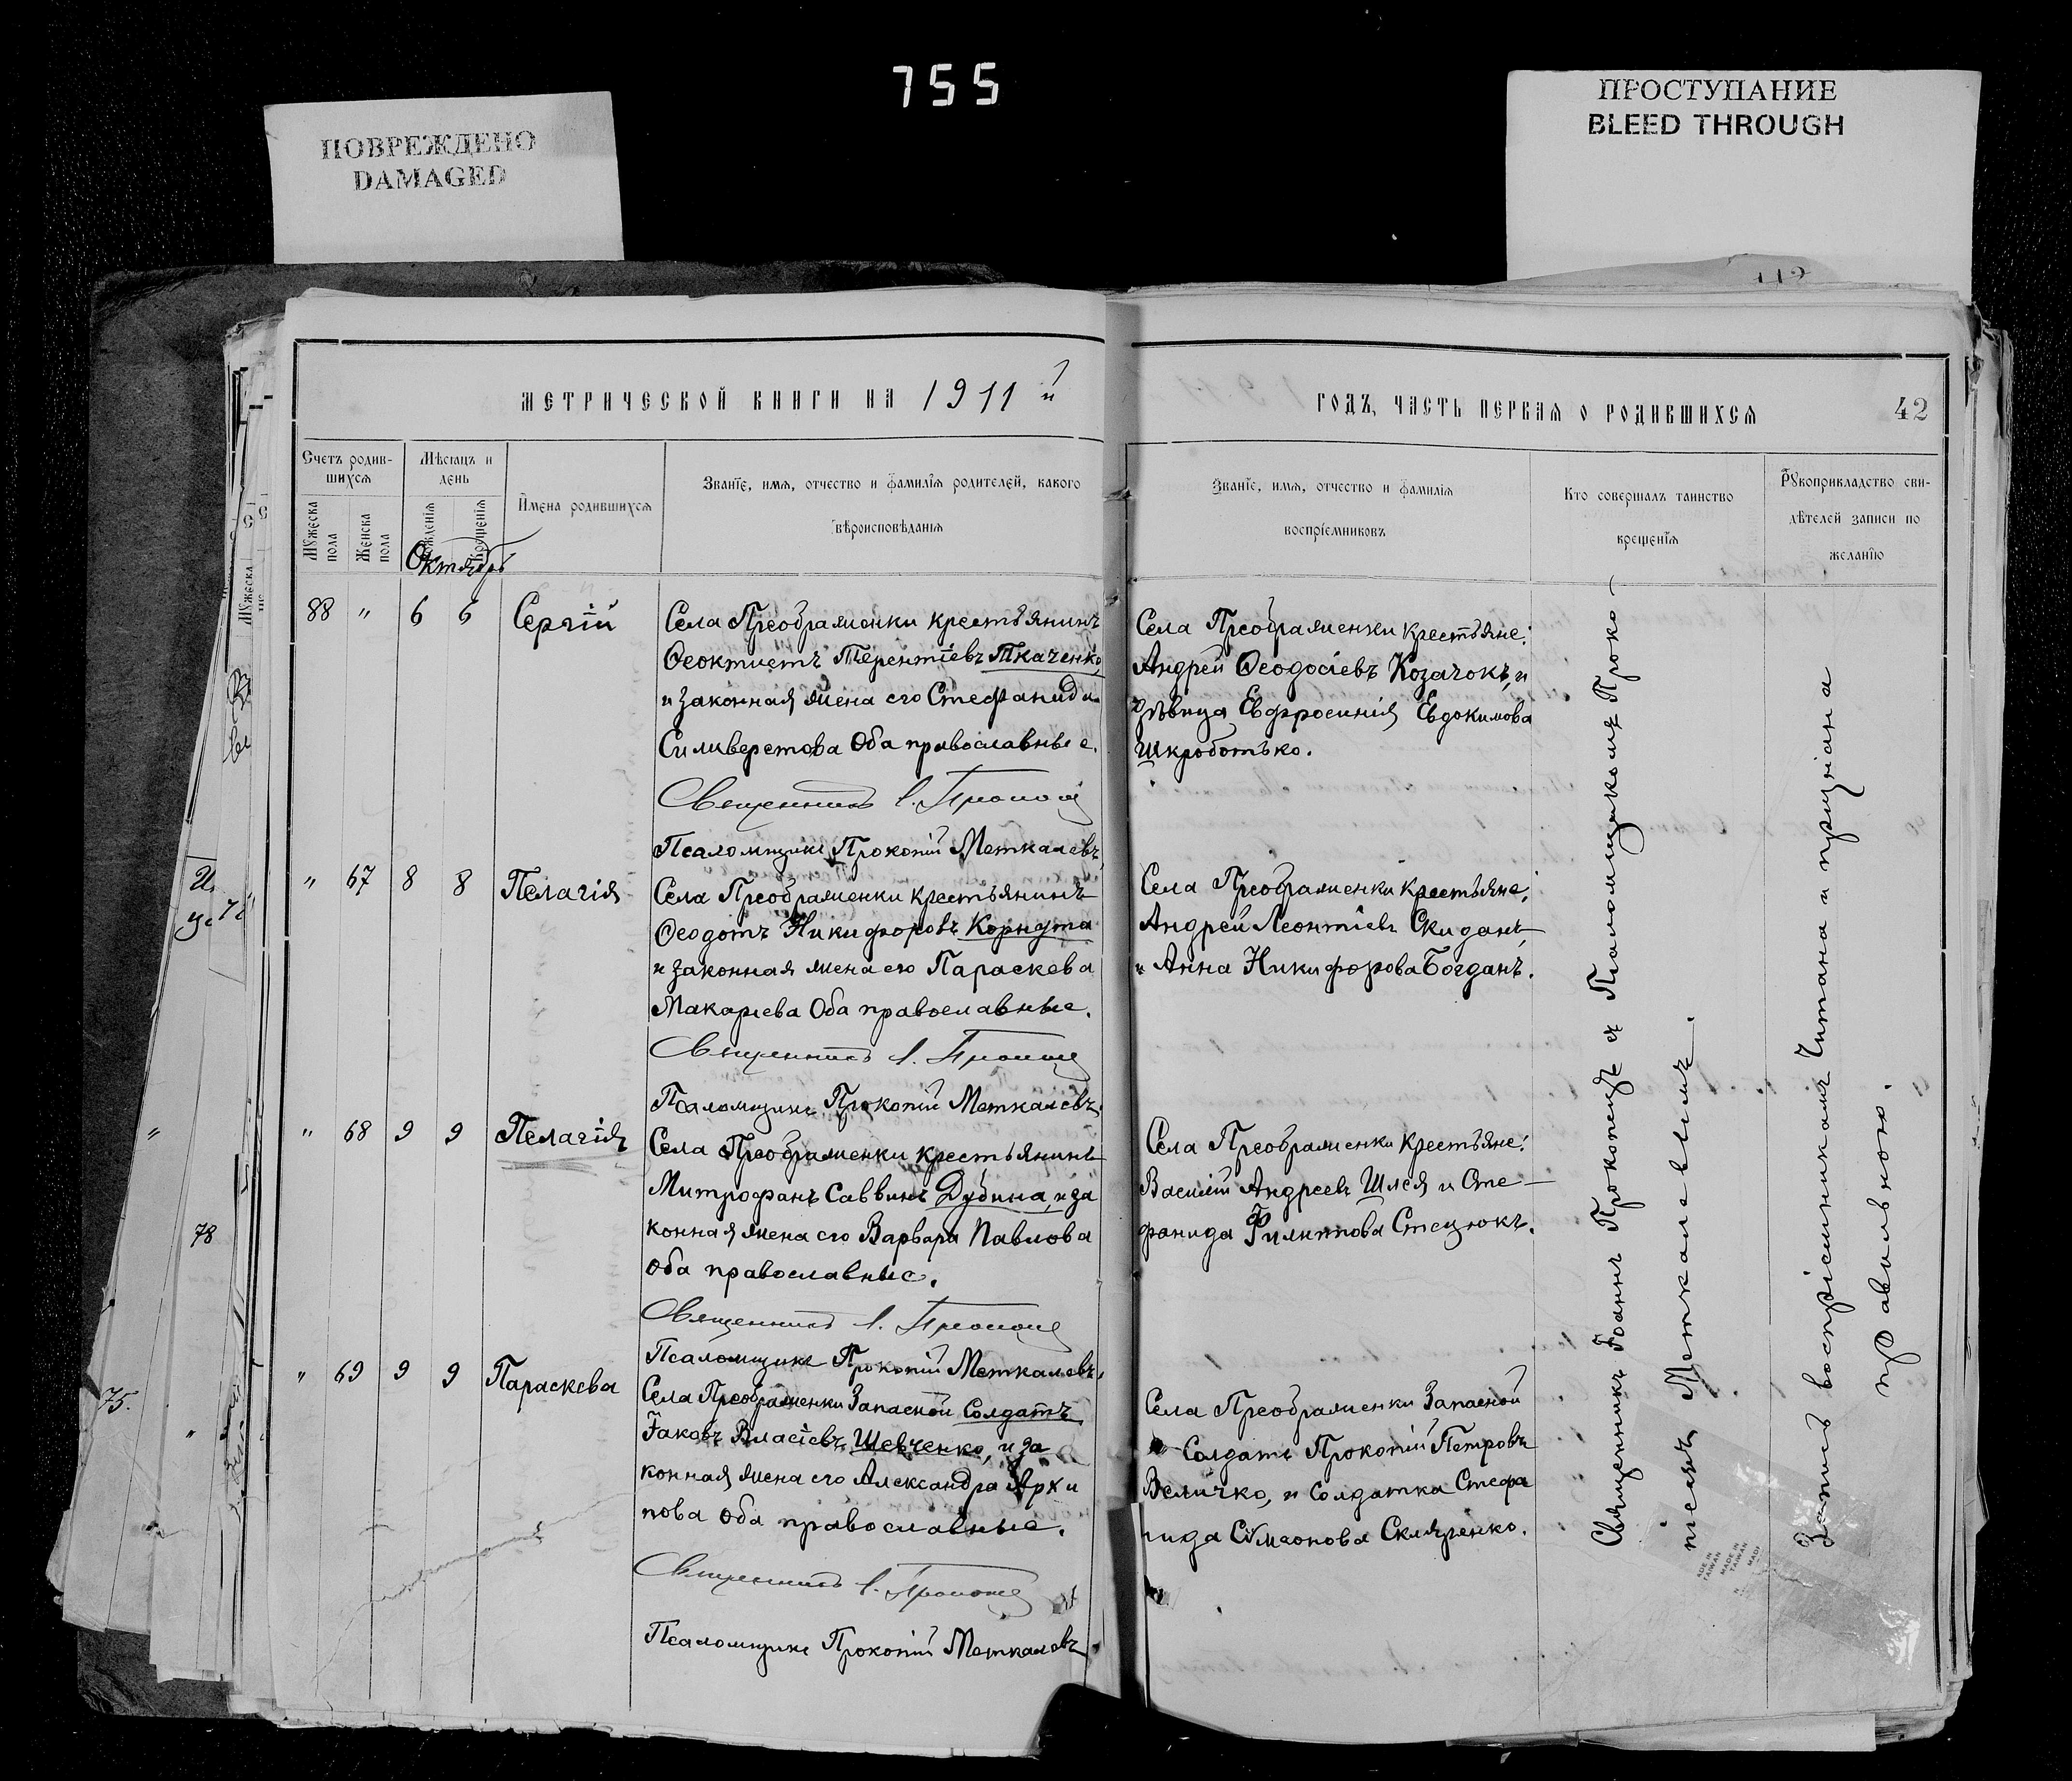 755
ПОВРЕЖДЕНО
DAMAGED
ПРОСТУПАНИЕ
BLEED THROUGH
112
МЕТРИЧЕСКОЙ КНИГИ НА 1911 й
Счетъ родив-
шихся
Мѣсяцъ и
день
Мужеска
пола
Женска
пола
Рожденія
Крещенія
Имена родившихся
Званіе, имя, отчество и фамилія родителей, какого
вѣроисповѣданія
Октябрь
88 " 6 6 Сергій
Села Преображенки крестьянинъ
Ѳеоктистъ Терентіевъ Ткаченко,
и законная жена его Стефанида
Силиверстова Оба православные.
Священникъ І. Прокопецъ
Псаломщикъ Прокопій Меткалевъ.
" 67 8 8 Пелагія
Села Преображенки крестьянинъ
Ѳеодотъ Никифоровъ Корнута
и законная жена его Параскева
Макаріева Оба православные.
Священникъ І. Прокопецъ
Псаломщикъ Прокопій Меткалевъ.
" 68 9 9 Пелагія
Села Преображенки крестьянинъ
Митрофанъ Саввинъ Дубина, и за
конная жена его Варвара Павлова
Оба православные.
Священникъ І. Прокопецъ
Псаломщикъ Прокопій Меткалевъ.
" 69 9 9 Параскева
Села Преображенки Запасной Солдатъ
Іаковъ Власіевъ Шевченко, и за
конная жена его Александра Архи
пова Оба православные.
Священникъ І. Прокопецъ
Псаломщикъ Прокопій Меткалевъ
78
75.
ГОДЪ, ЧАСТЬ ПЕРВАЯ О РОДИВШИХСЯ
42
Званіе, имя, отчество и фамилія
воспріемниковъ
Кто совершалъ таинство
крещенія
Рукоприкладство сви-
дѣтелей записи по
желанію
Села Преображенки крестьяне:
Андрей Ѳеодосіевъ Козачокъ, и
дѣвица Евфросинія Евдокимова
Шкроботько.
Села Преображенки крестьяне:
Андрей Леонтіевъ Скиданъ,
и Анна Никифорова Богданъ.
Села Преображенки крестьяне:
Василій Андреевъ Шлея и Сте-
фанида Филиппова Стецюкъ.
Села Преображенки Запасной
Солдатъ Прокопій Петровъ
Величко, и Солдатка Стефа
нида Симеонова Скляренко.
Священникъ Іоаннъ Прокопецъ съ Псаломщикомъ Проко-
піемъ Меткалевымъ.
Запись воспріемникамъ Читана и признана
правильною.
MADE IN
TAIWAN